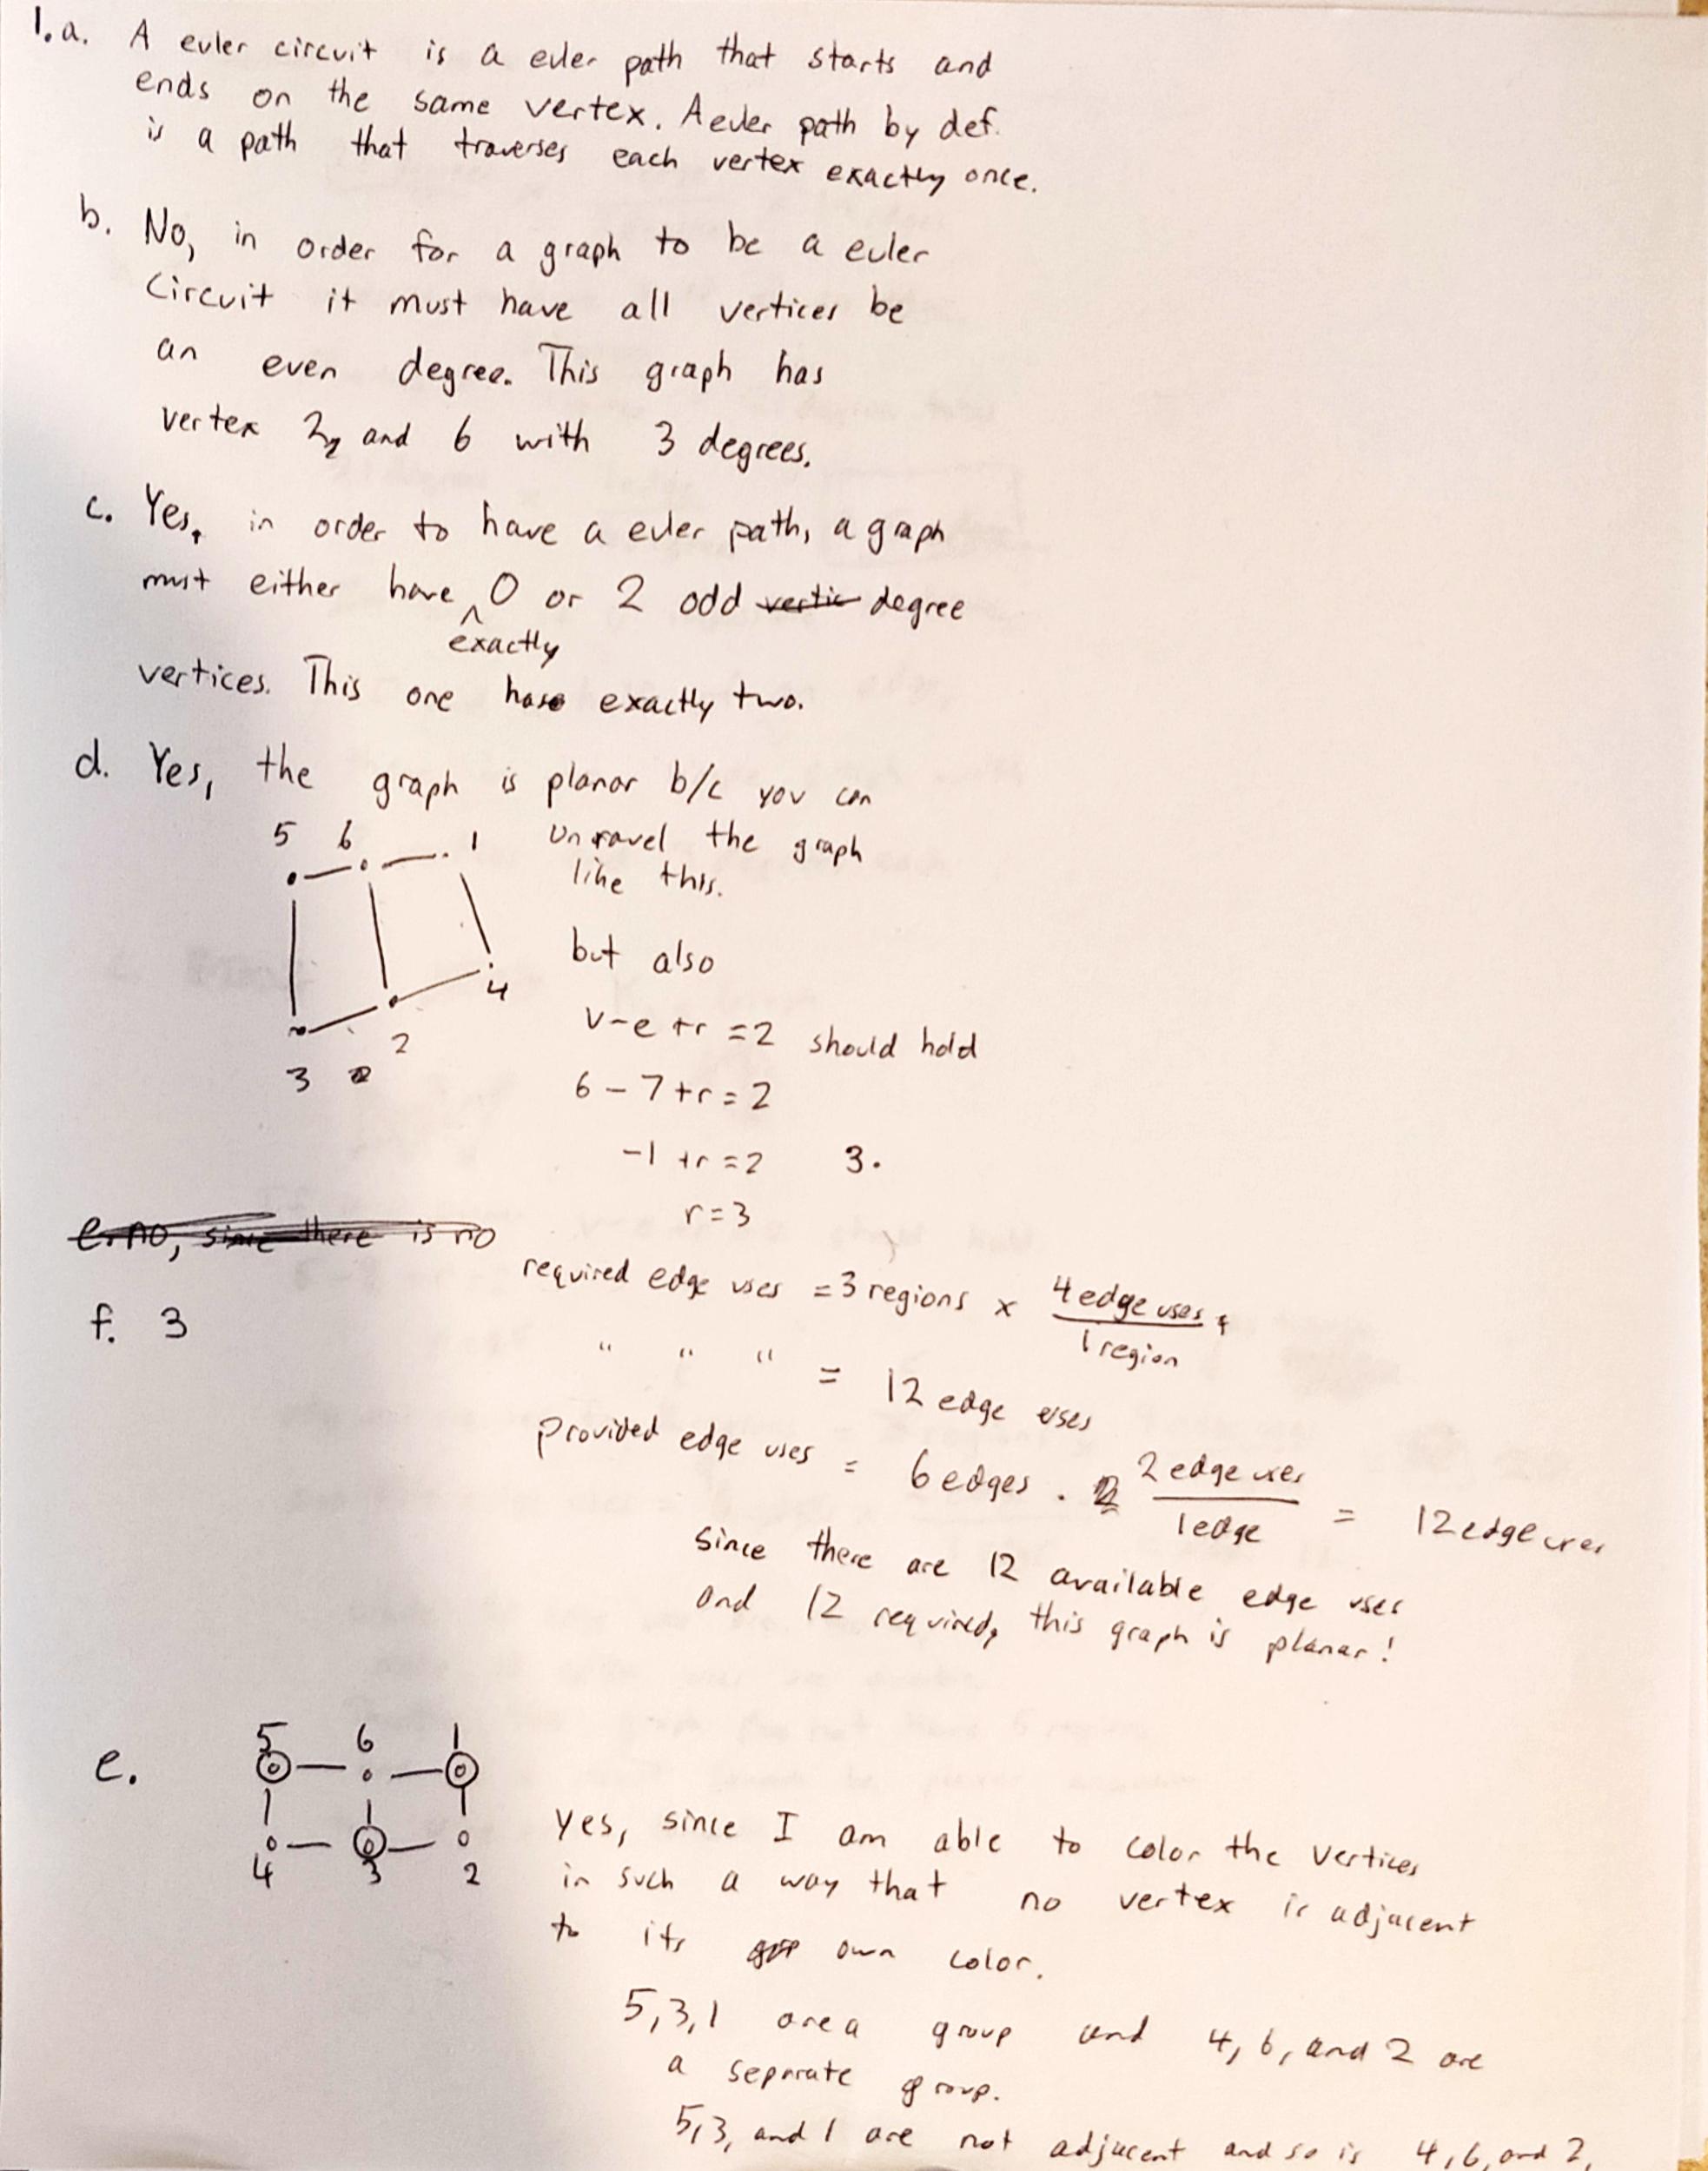 1.a. A euler circuit is a euler path that starts and
ends on the same vertex. A euler path by def.
is a path that traverses each vertex exactly once.
b. No, in order for a graph to be a euler
circuit it must have all vertices be
an even degree. This graph has
vertex 2, and 6 with 3 degrees.
c. Yes, in order to have a euler path, a graph
must either have exactly 0 or 2 odd degree
vertices. This one has exactly two.
d. Yes, the graph is planar b/c you can
unravel the graph
like this.
5 6 1
but also
4
2
3
v-e+r=2 should hold
6-7+r=2
-1+r=2 3.
r=3
e. no, since there is no
required edge uses = 3 regions x 4 edge uses / 1 region
f. 3
" " " = 12 edge uses
provided edge uses = 6 edges . 2 edge uses / 1 edge = 12 edge uses
since there are 12 available edge uses
and 12 required, this graph is planar!
e.
5 6 1
4 3 2
Yes, since I am able to color the vertices
in such a way that no vertex is adjacent
to its own color.
5,3,1 are a group and 4, 6, and 2 are
a seperate group.
5,3, and 1 are not adjacent and so is 4,6, and 2.